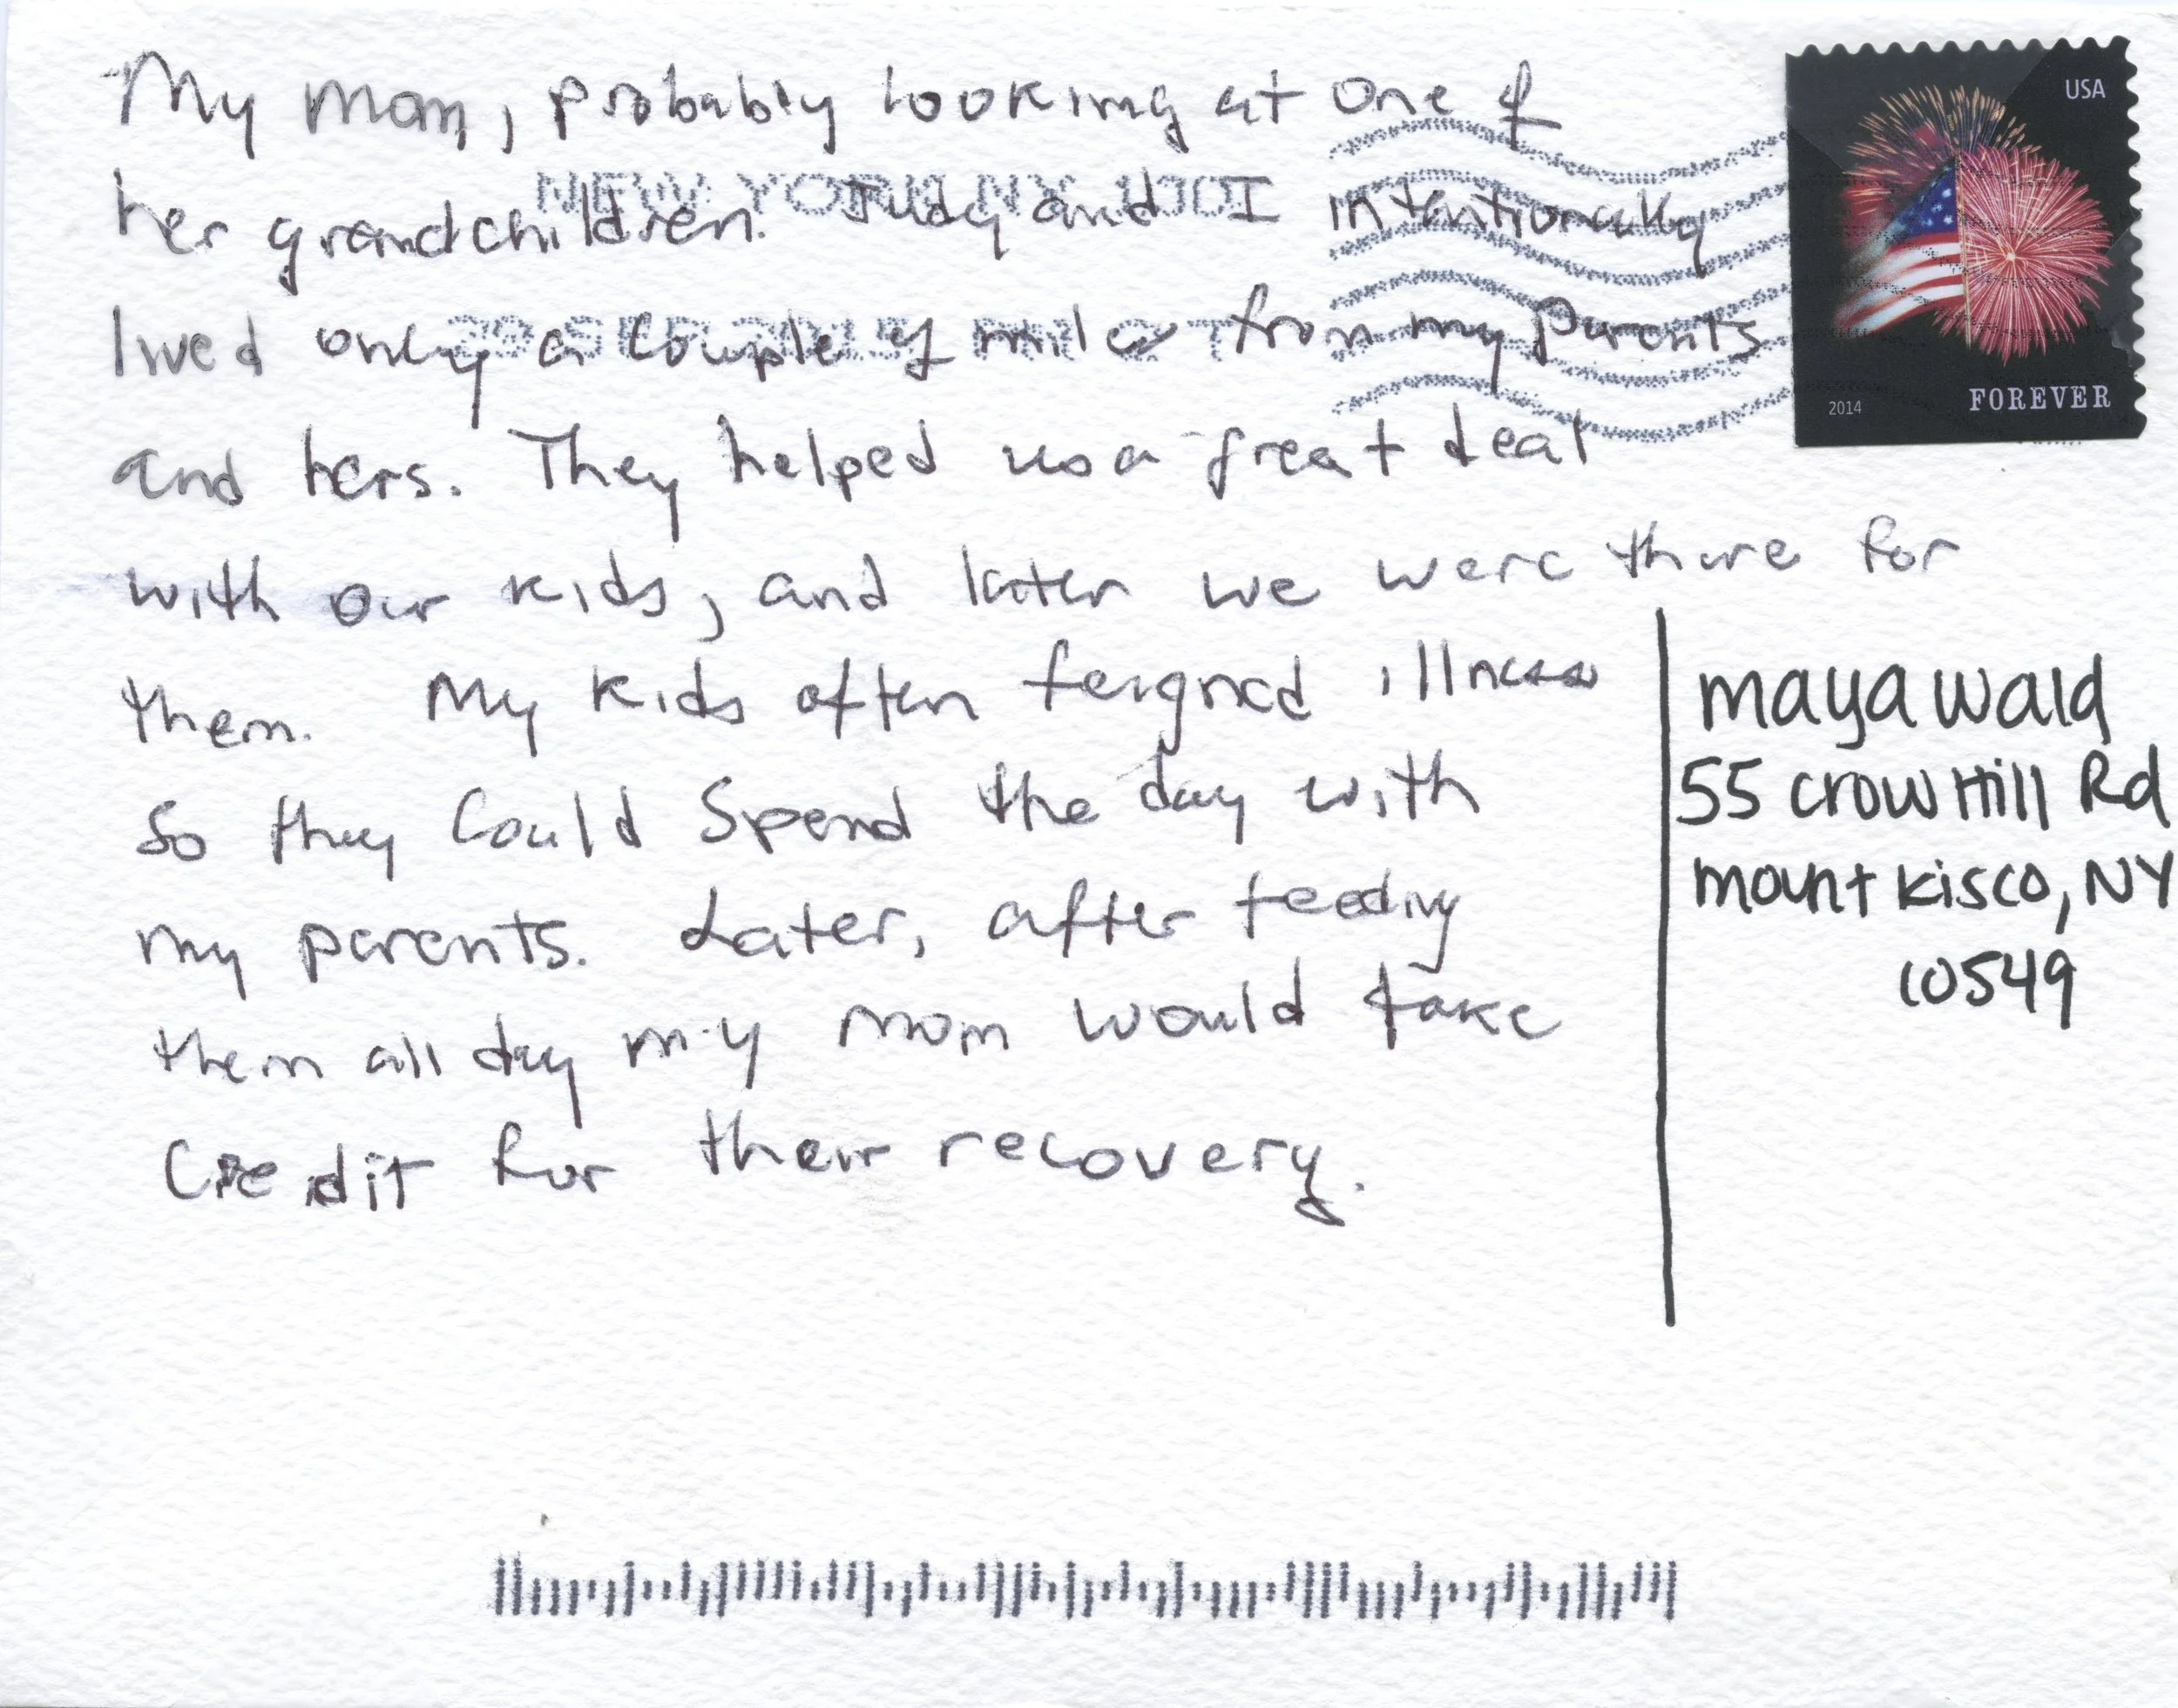 My mom, probably looking at one of
her grandchildren. Judy and I intentionally
lived only a couple of miles from my parents
and hers. They helped us a great deal
with our kids, and later we were there for
them. My kids often feigned illness
so they could spend the day with
my parents. Later, after feeding
them all day my mom would take
credit for their recovery.
USA
2014 FOREVER
NEW YORK NY
maya wald
55 crow Hill Rd
mount kisco, NY
10549